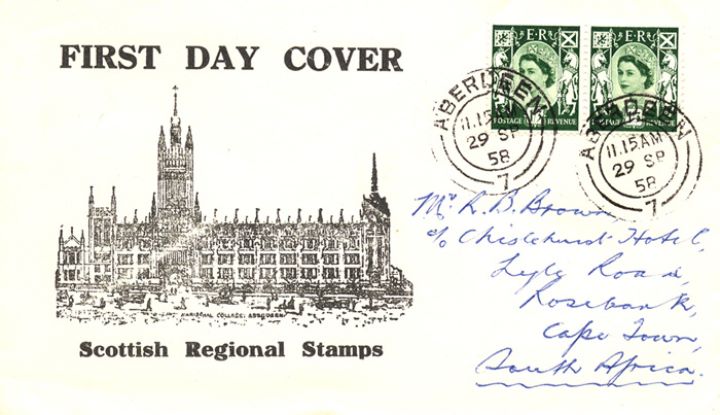 FIRST DAY COVER
MARISCHAL COLLEGE, ABERDEEN
Scottish Regional Stamps
E R
POSTAGE REVENUE
E R
POSTAGE REVENUE
ABERDEEN
11.15 AM
29 SP
58
7
ABERDEEN
11.15 AM
29 SP
58
7
Mr. R. B. Brown
c/o Chislehurst Hotel,
Road,
Rosebank,
Cape Town,
South Africa.